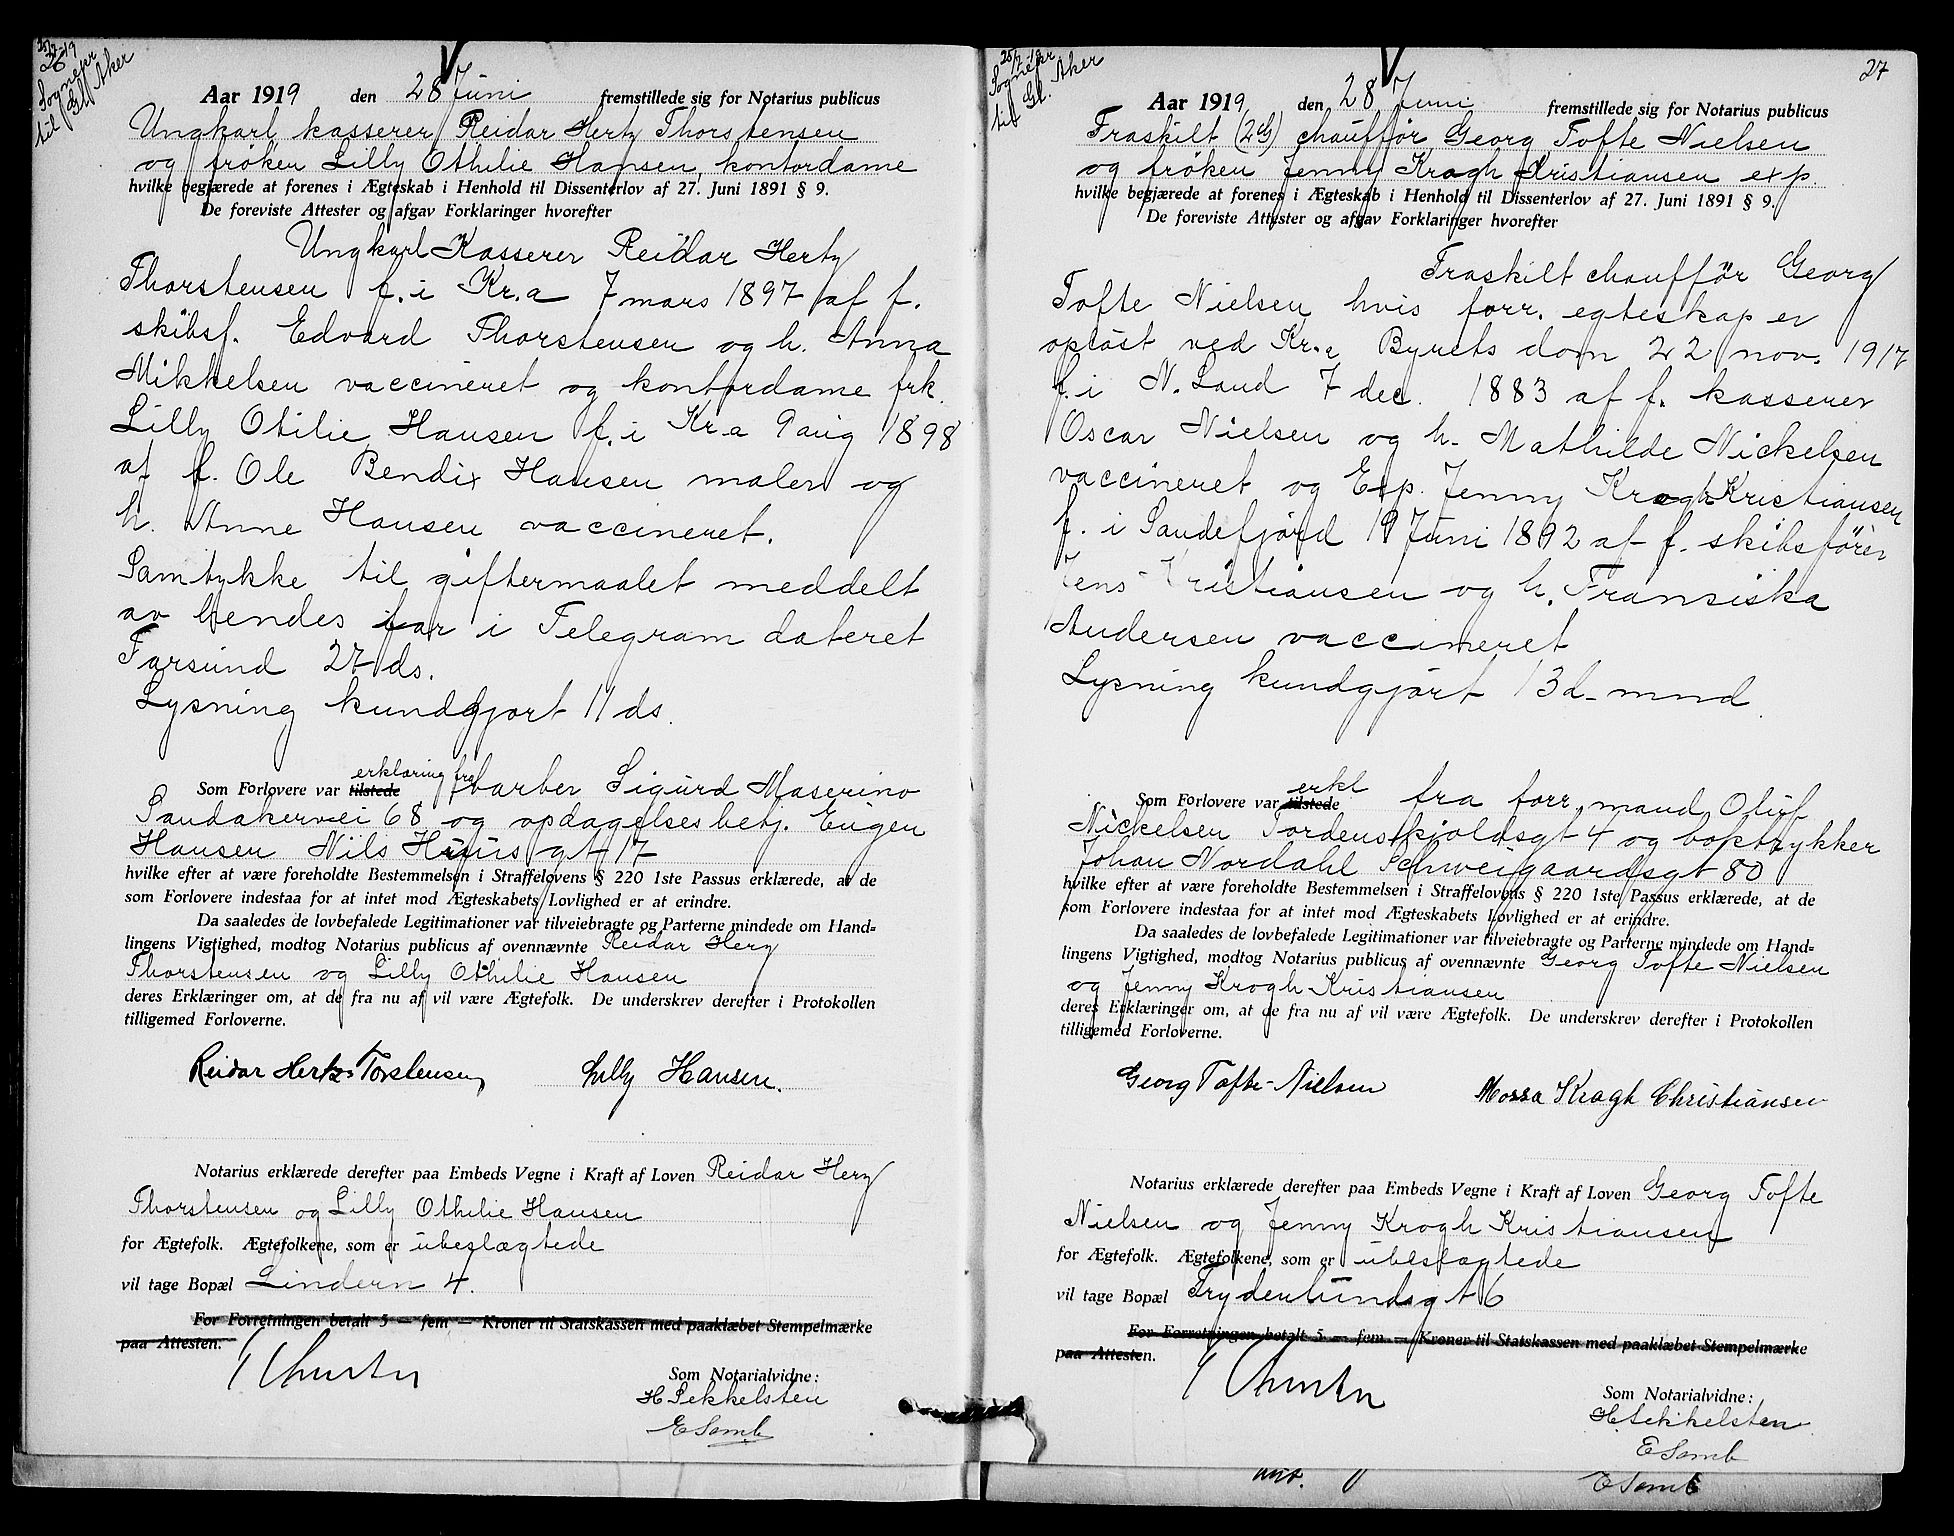 25/7-19
26
Sognepr
til Gl. Aker
Aar 1919 den 28 Juni fremstillede sig for Notarius publicus
Ungkarl kasserer Reidar Hertz Thorstensen
og frøken Lilly Othilie Hansen, kontordame
hvilke begjærede at forenes i Ægteskab i Henhold til Dissenterlov af 27. Juni 1891 § 9.
De foreviste Attester og afgav Forklaringer hvorefter
Ungkarl Kasserer Reidar Hertz
Thorstensen f. i Kr.a 7 mars 1897 af f.
skibsf. Edvard Thorstensen og h. Anna
Mikkelsen vaccineret og kontordame frk.
Lilly Otilie Hansen f. i Kr.a 9 aug 1898
af f. Ole Bendix Hansen maler og
h. Anne Hansen vaccineret.
Samtykke til giftermaalet meddelt
av hendes far i Telegram dateret
Farsund 27 ds.
Lysning kundgjort 11 ds.
Som Forlovere var tilstede erklæring fra barber Sigurd Maserino
Sandakervei 68 og opdagelsesbetj. Eugen
Hansen Nils Huus gt 17
hvilke efter at være foreholdte Bestemmelsen i Straffelovens § 220 1ste Passus erklærede, at de
som Forlovere indestaa for at intet mod Ægteskabets Lovlighed er at erindre.
Da saaledes de lovbefalede Legitimationer var tilveiebragte og Parterne mindede om Hand=
lingens Vigtighed, modtog Notarius publicus af ovennævnte Reidar Herz
Thorstensen og Lilly Othilie Hansen
deres Erklæringer om, at de fra nu af vil være Ægtefolk. De underskrev derefter i Protokollen
tilligemed Forloverne.
Reidar Hertz-Torstensen Lilly Hansen.
Notarius erklærede derefter paa Embeds Vegne i Kraft af Loven Reidar Herz
Thorstensen og Lilly Othilie Hansen
for Ægtefolk. Ægtefolkene, som er ubeslægtede
vil tage Bopæl Lindern 4.
For Forretningen betalt 5 — fem — Kroner til Statskassen med paaklæbet Stempelmærke
paa Attesten.
Som Notarialvidne:
H Sekkelsten
E Somb
25/7-19
Sognepr
til Gl. Aker
27
Aar 1919 den 28 Juni fremstillede sig for Notarius publicus
Fraskilt (2 G) chauffør Georg Tofte Nielsen
og frøken Jenny Kragh Kristiansen exp.
hvilke begjærede at forenes i Ægteskab i Henhold til Dissenterlov af 27. Juni 1891 § 9.
De foreviste Attester og afgav Forklaringer hvorefter
Fraskilt chauffør Georg
Tofte Nielsen hvis forr. egteskap er
opløst ved Kr.a Byrets dom 22 nov. 1917
f. i N. Land 7 dec. 1883 af f. kasserer
Oscar Nielsen og h. Mathilde Nickelsen
vaccineret og Exp. Jenny Kragh Kristiansen
f. i Sandefjord 19 Juni 1892 af f. skibsfører
Jens Kristiansen og h. Fransiska
Andersen vaccineret
Lysning kundgjort 13 d. mnd.
Som Forlovere var tilstede erkl fra forr. mand Oluf
Nickelsen Tordenskjoldsgt 4 og boktrykker
Johan Nordahl Schweigaardsgt 80
hvilke efter at være foreholdte Bestemmelsen i Straffelovens § 220 1ste Passus erklærede, at de
som Forlovere indestaa for at intet mod Ægteskabets Lovlighed er at erindre.
Da saaledes de lovbefalede Legitimationer var tilveiebragte og Parterne mindede om Hand=
lingens Vigtighed, modtog Notarius publicus af ovennævnte Georg Tofte Nielsen
og Jenny Krogh Kristiansen
deres Erklæringer om, at de fra nu af vil være Ægtefolk. De underskrev derefter i Protokollen
tilligemed Forloverne.
Georg Tofte-Nielsen Mossa Kragh Christiansen
Notarius erklærede derefter paa Embeds Vegne i Kraft af Loven Georg Tofte
Nielsen og Jenny Krogh Kristiansen
for Ægtefolk. Ægtefolkene, som er ubeslægtede
vil tage Bopæl Frydenlundsgt 6
For Forretningen betalt 5 — fem — Kroner til Statskassen med paaklæbet Stempelmærke
paa Attesten.
Som Notarialvidne:
H. Sekkelsten
E Somb
E Somb